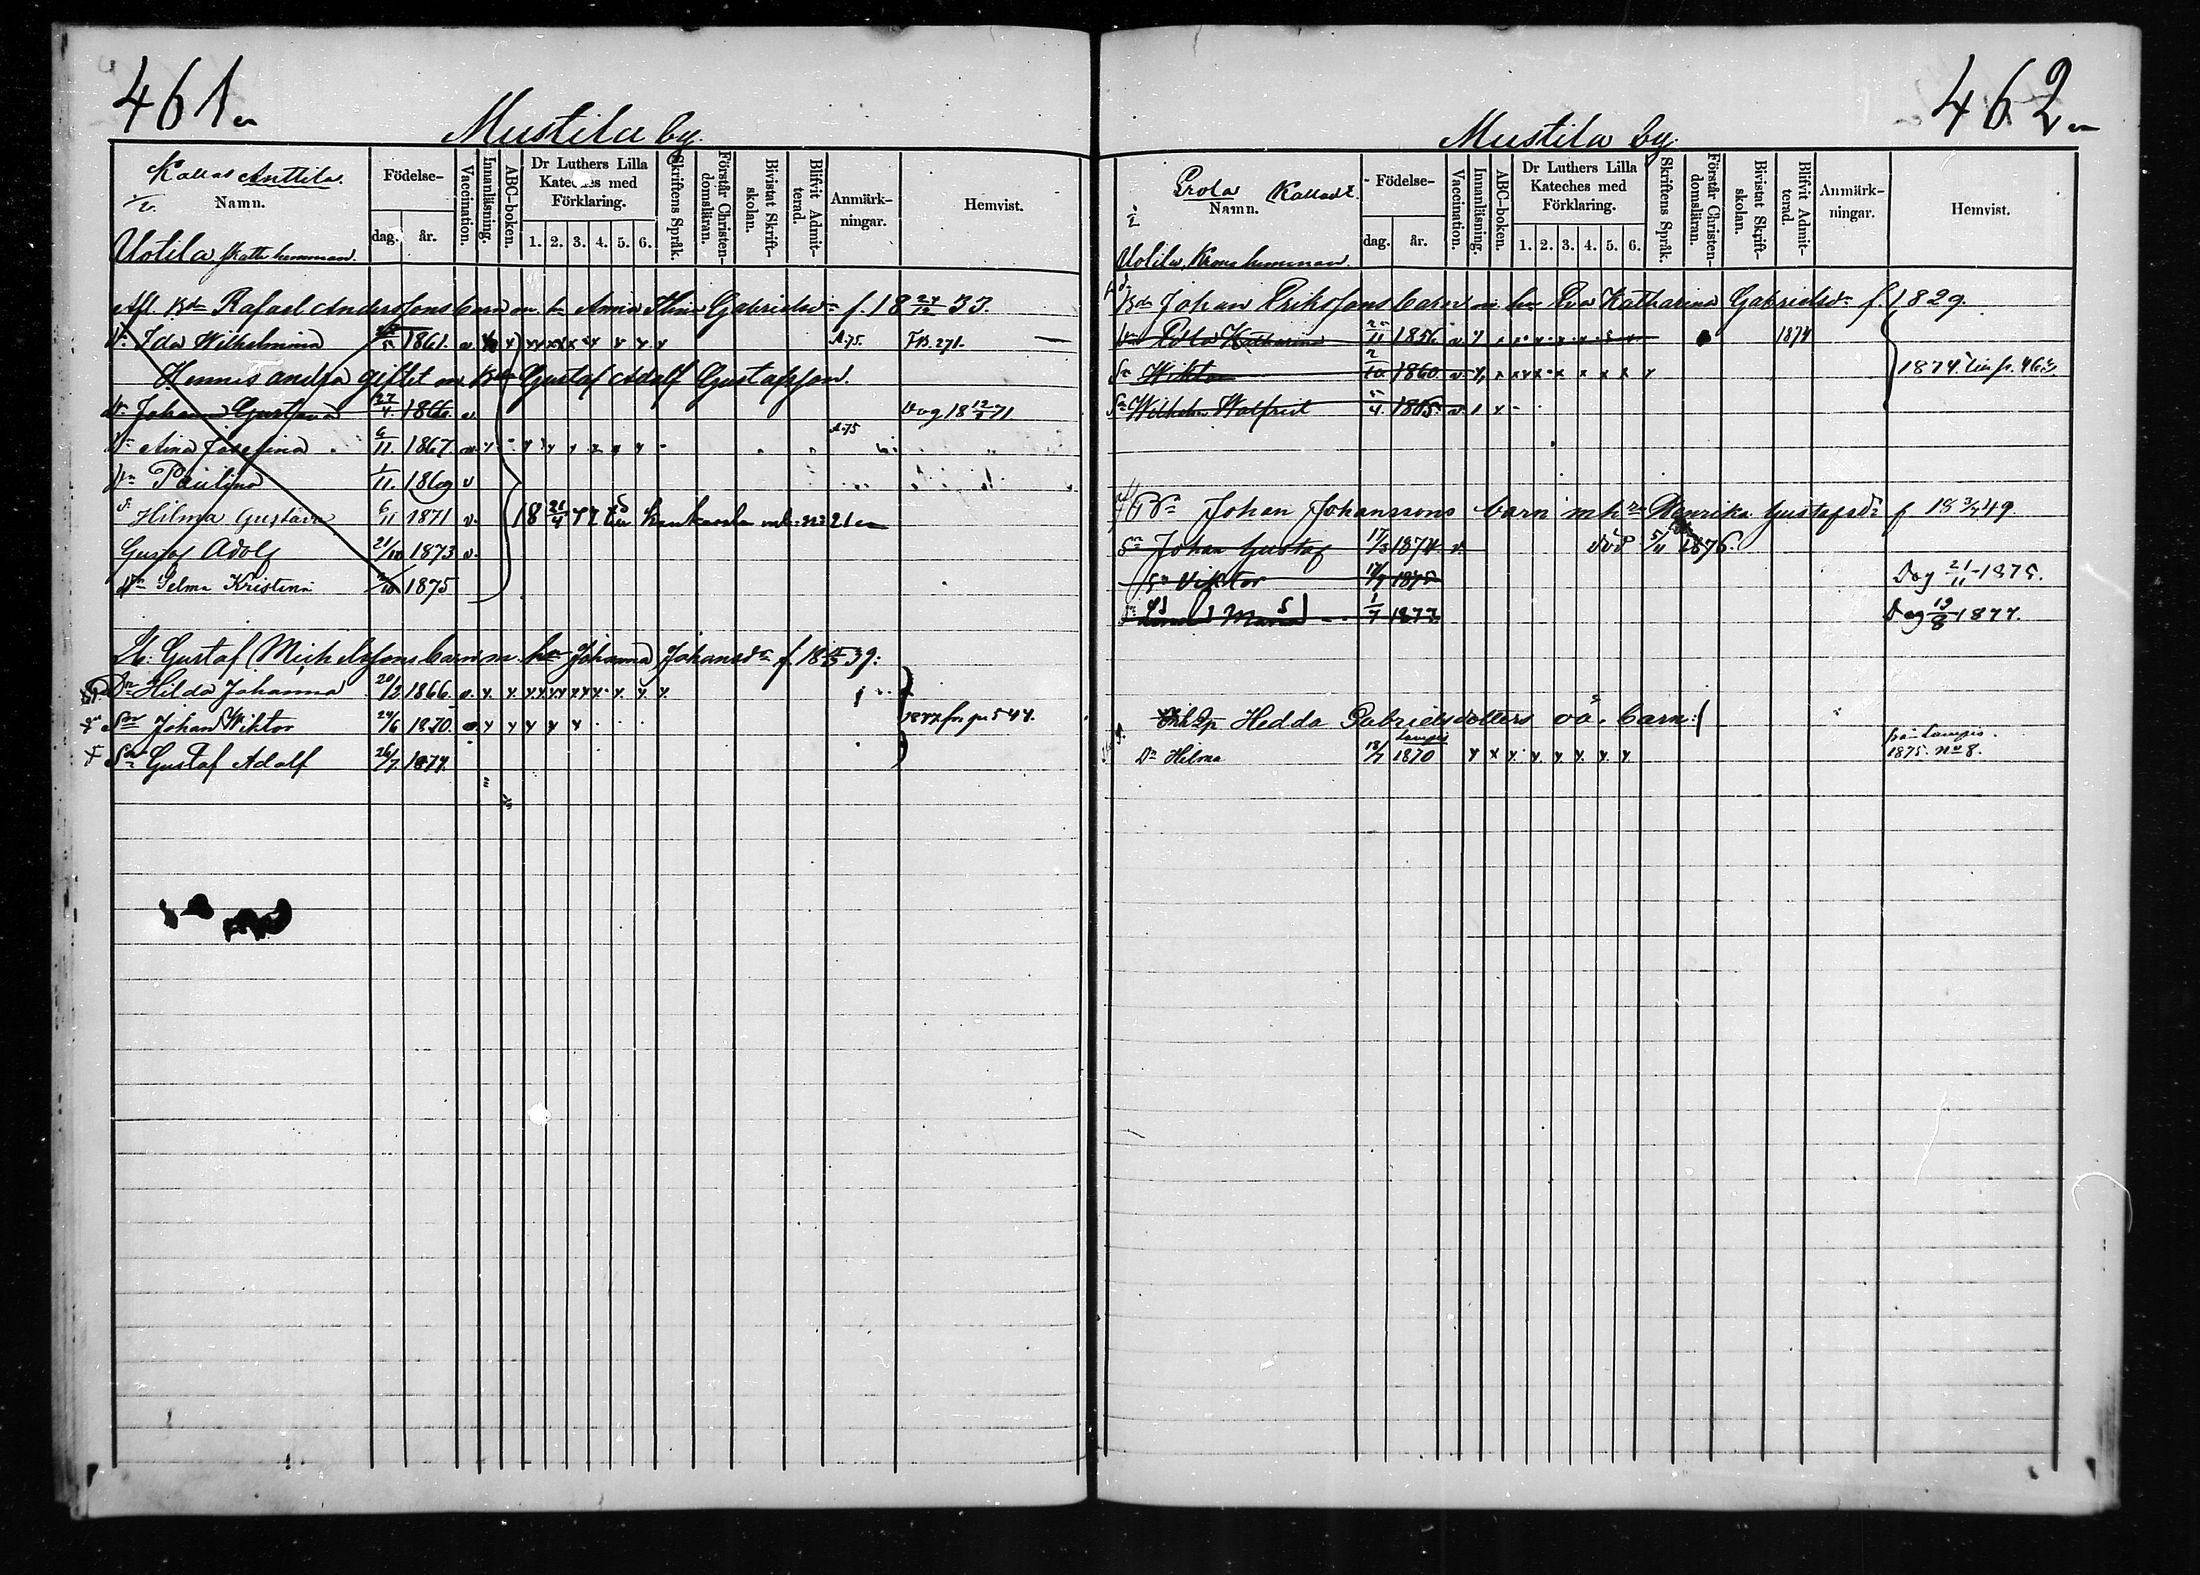 461
Mustila by.
Kallas Anttila.
Namn.
Födelse-
dag. år.
Vaccination.
Innanläsning.
ABC-boken.
Dr Luthers Lilla
Kateches med
Förklaring.
1. 2. 3. 4. 5. 6.
Skriftens Språk.
Förstår Christen-
domsläran.
Bivistat Skrift-
skolan.
Blifvit Admit-
terad.
Anmärk-
ningar.
Hemvist.
Uotila skatte hemman.
Afl. Bdn Rafael Anderssons barn m. h. Anna Stina Gabrielsdr f. 18 24/12 33.
Dr Ida Wilhelmina 1861. v A.75. 271.
Hennes andra giftet m Bdn Gustaf Adolf Gustafsson.
Dr Johanna Gustava 27/4 1866. v Dog 18 12/3 71
Dr Aina Josefina 6/11 1867. v A.75
Dr Paulina 1/11. 1869 v
Dr Hilma Gustava 6/11 1871 v. 18 21/4 77 till
Gustaf Adolf 21/10 1873 v.
Dr Selma Kristina 1875
Gustaf Michelssons barn m. hu Johanna Johansdr f. 18 39:
Dr Hilda Johanna 20/12 1866. v.
Son Johan Wiktor 24/6 1870. v. 544.
Son Gustaf Adolf 26/7 1877.
462
Mustila by.
Prola Kallad
Namn.
Födelse-
dag. år.
Vaccination.
Innanläsning.
ABC-boken.
Dr Luthers Lilla
Kateches med
Förklaring.
1. 2. 3. 4. 5. 6.
Skriftens Språk.
Förstår Christen-
domsläran.
Bivistat Skrift-
skolan.
Blifvit Admit-
terad.
Anmärk-
ningar.
Hemvist.
Uotila, Krono hemman.
Bdn Johan Erikssons barn m hu Eva Katharina Gabrielsdr f. 1829.
Dr Edla Katharina 1856 v. 1874
Sn Wiktor 2/10 1860 v. 1874
Sn Wilhelm Walfrid 5/4 1865 v.
Bdn Johan Johanssons barn m hu Henrika Gustafsdr f 18 3/7 49.
Sn Johan Gustaf 17/3 1874 v. död 5/11 1876.
Sn Viktor 1875 Dog 21/11 1875.
Maria 1/7 1877 Dog 19/8 1877.
Inh. Hedda Gabrielsdotters oä. barn:
Dr Hilma 18/7 Lampis 1870 från Lampis. 1875. No 8.